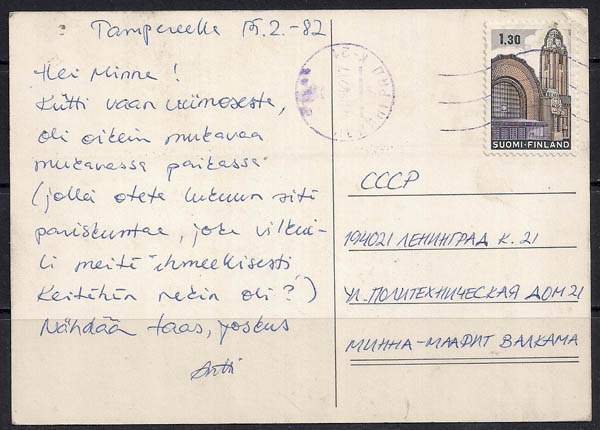 Tampereella 15.2.-82
Hei Minna!
Kiitti vaan viimosesta,
oli oikein mukavaa
mukavassa paikassa
(jollei oteta lukuun sitä
pariskuntaa, joka vilkui-
li meitä ihmeellisesti
Keitähän nekin oli?)
Nähdään taas, joskus
Antti
1.30
SUOMI-FINLAND
СССР
194021 ЛЕНИНГРАД К. 21
УЛ. ПОЛИТЕХНИЧЕСКАЯ ДОМ 21
МИННА-МААРИТ ВАЛКАМА